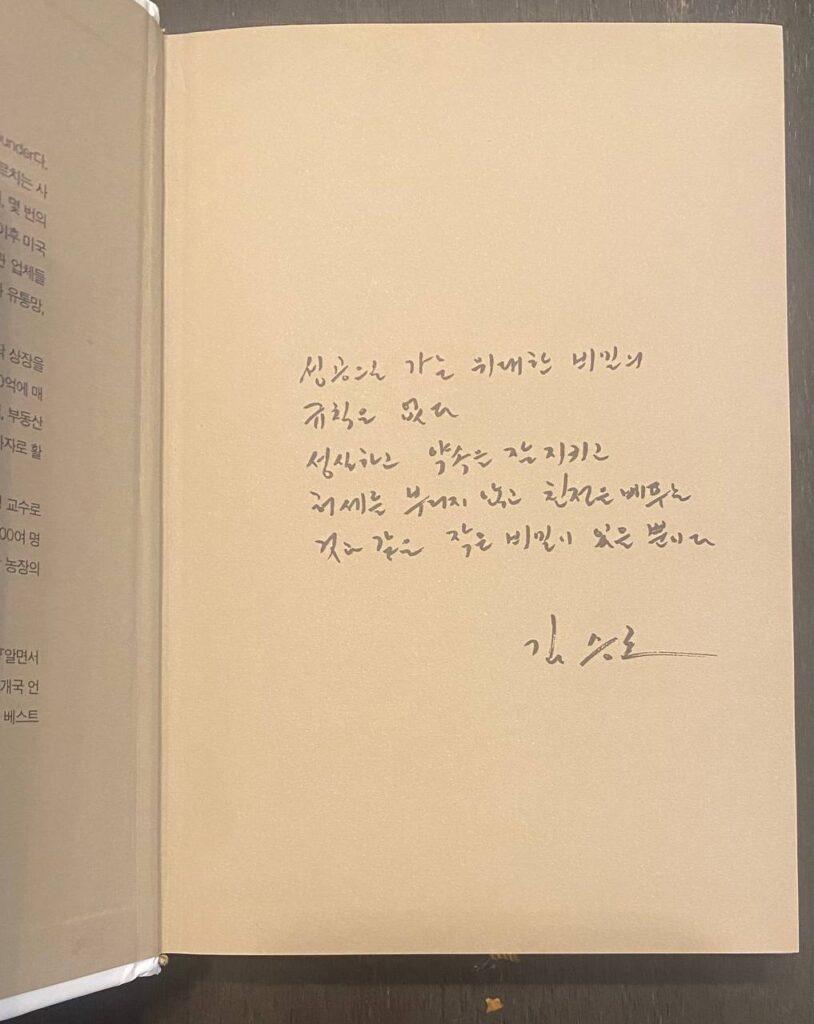 under다.
르치는 사
몇 번의
이후 미국
업체들
유통망,
상장을
0억에 매
부동산
자로 활
교수로
00여 명
농장의
알면서
개국 언
베스트
성공으로 가는 위대한 비밀의
규칙은 없다
성실하고 약속은 잘 지키고
허세를 부리지 않고 친절을 베푸는
것과 같은 작은 비밀이 있을 뿐이다
김승호